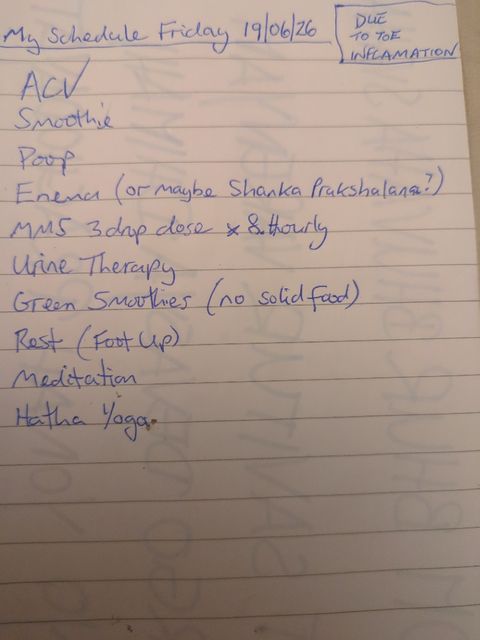 My Schedule Friday 19/06/26
DUE
TO TOE
INFLAMATION
ACV
Smoothie
Poop
Enema (or maybe Shanka Prakshalana?)
MMS 3 drop dose x 8. Hourly
Urine Therapy
Green Smoothies (no solid food)
Rest (Foot Up)
Meditation
Hatha Yoga.